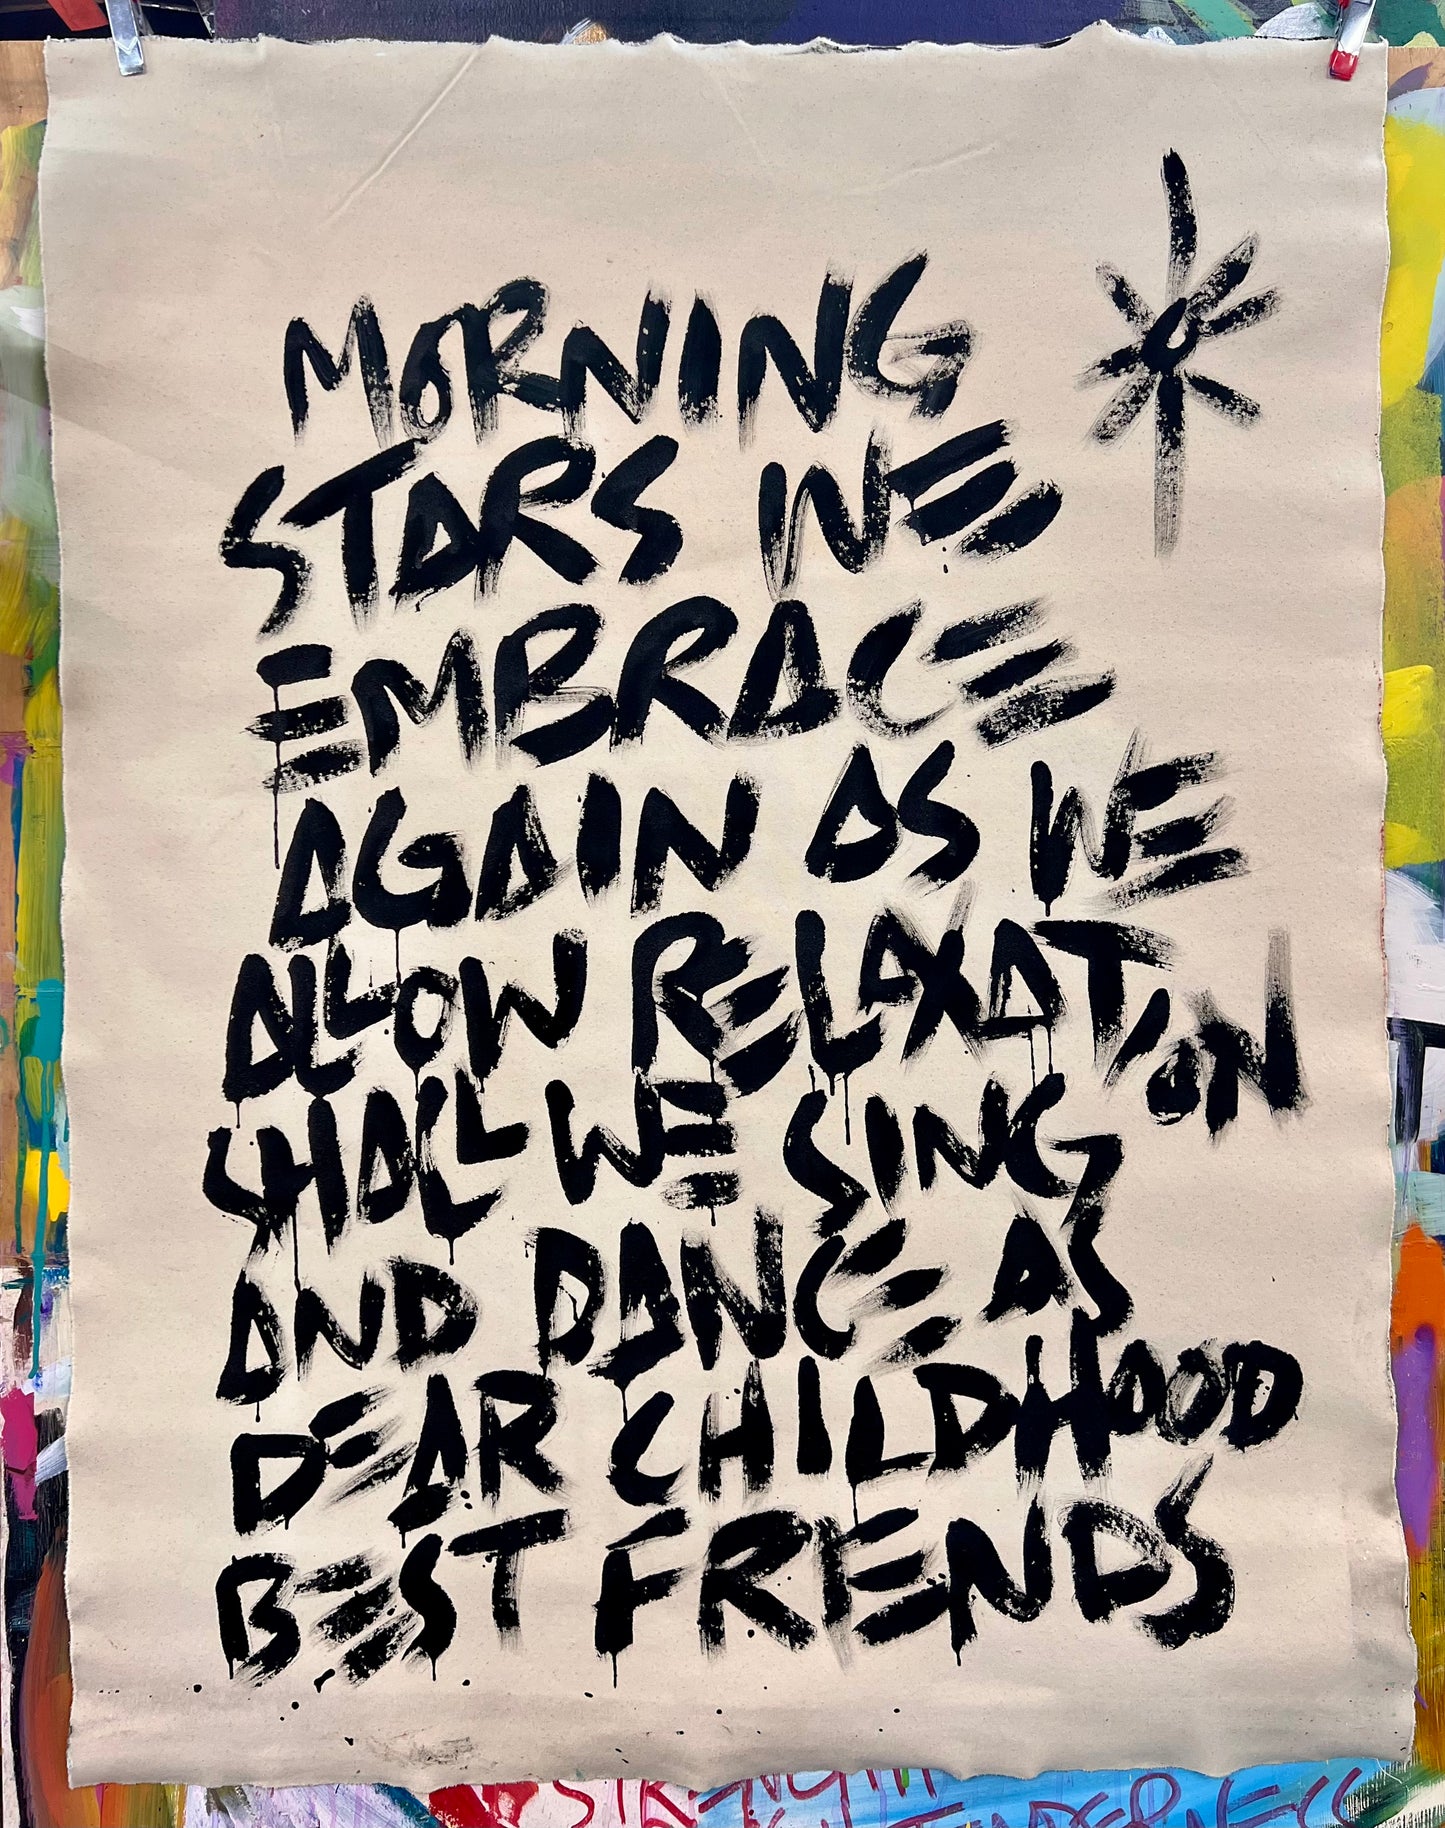 MORNING
STARS WE
EMBRACE
AGAIN AS WE
ALLOW RELAXATION
SHALL WE SING
AND DANCE AS
DEAR CHILDHOOD
BEST FRIENDS
STRENGTH
TENDERNESS